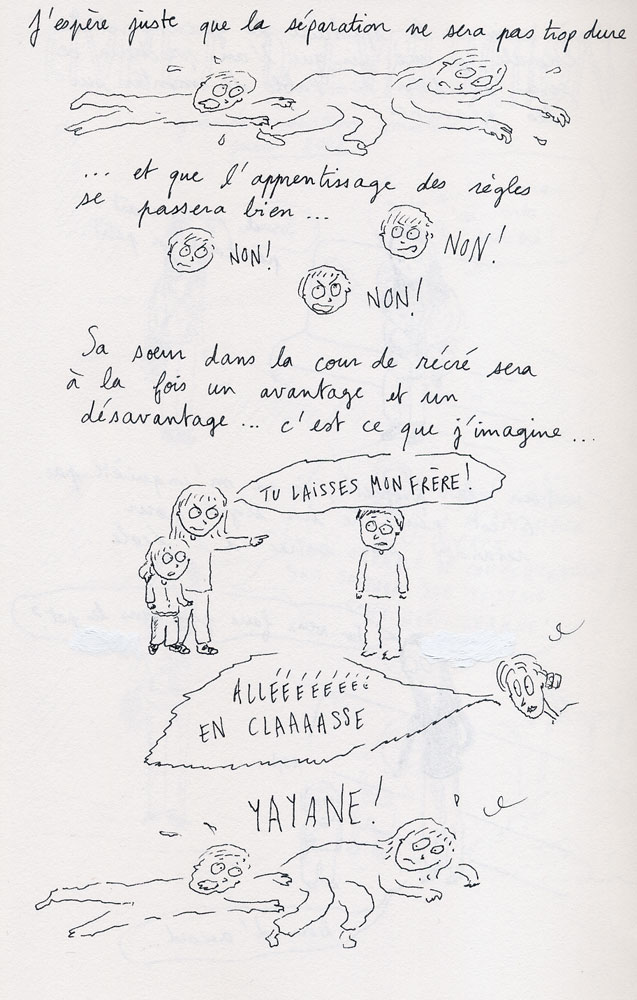 J'espère juste que la séparation ne sera pas trop dure
... et que l'apprentissage des règles
se passera bien ...
NON!
NON!
NON!
Sa soeur dans la cour de récré sera
à la fois un avantage et un
désavantage ... c'est ce que j'imagine ...
TU LAISSES MON FRÈRE!
ALLÉÉÉÉÉÉÉÉ
EN CLAAAASSE
YAYANE!